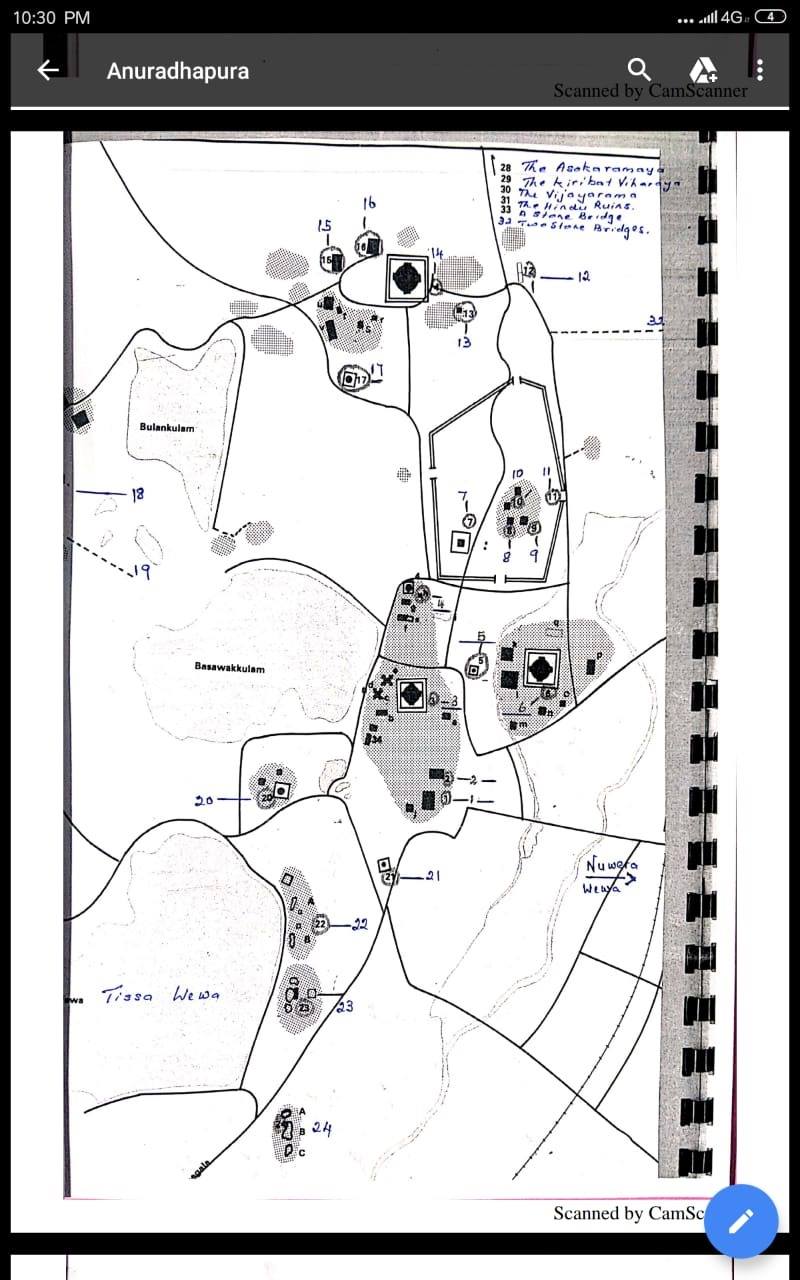 10:30 PM
4G
4
Anuradhapura
Scanned by CamScanner
28 The Asokaramaya
29 The Kiribat Viharaya
30 The Vijayarama
31 The Hindu Ruins.
33 A Stone Bridge
32 Two Stone Bridges.
16
15
16
15
14
12
12
13
13
32
17
17
Bulankulam
18
10
11
7
10
11
7
9
8
9
8
19
4
5
5
Basawakkulam
3
6
6
34
2
1
20
20
21
21
Nuwera
Wewa
A
22
22
B
Tissa Wewa
ewa
23
23
A
B
24
C
Scanned by CamSc